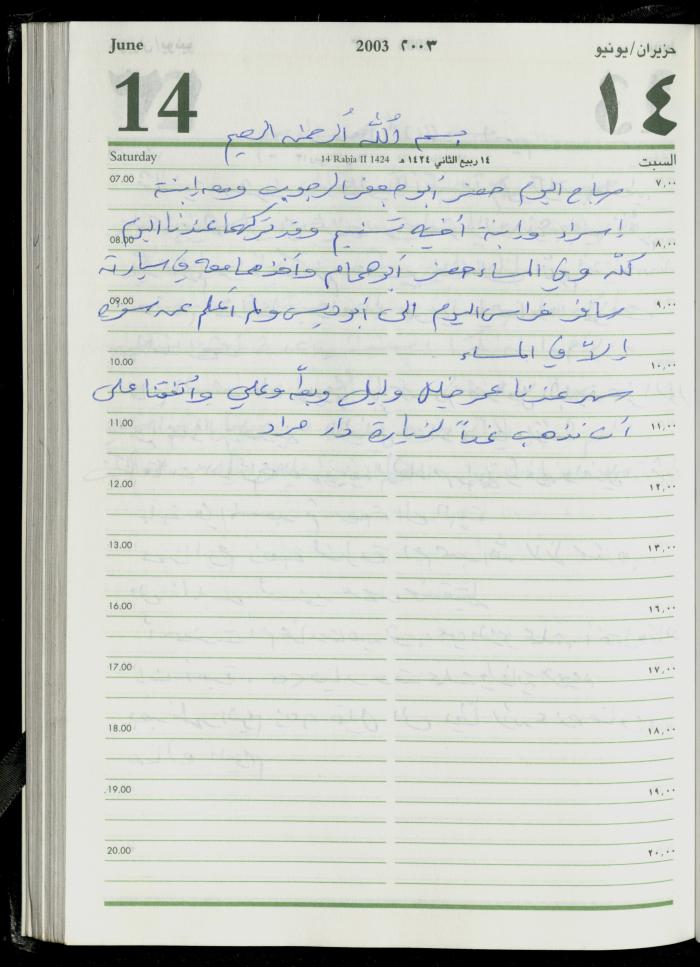 June 2003 ٢٠٠٣ حزيران/يونيو
14 ١٤
بسم الله الرحمن الرحيم
Saturday 14 Rabia II 1424 ١٤ ربيع الثاني ١٤٢٤ هـ السبت
07.00 صباح اليوم حضر أبو جعفر الرجوب ومعه ابنته ٧,٠٠
إسراء وابنة أخيه تسنيم وقد تركهما عندنا اليوم
08.00 ٨,٠٠
كله وفي المساء حضر أبو همام وأخذهما معه في سيارته
09.00 سافر فراس اليوم الى أبوديس ولم أعلم عن سفره ٩,٠٠
إلاّ في المساء
10.00 ١٠,٠٠
سهر عندنا عمر خليل وليل وعلي واتفقنا على
11.00 أن نذهب غداً لزيارة دار مراد ١١,٠٠
12.00 ١٢,٠٠
13.00 ١٣,٠٠
16.00 ١٦,٠٠
17.00 ١٧,٠٠
18.00 ١٨,٠٠
19.00 ١٩,٠٠
20.00 ٢٠,٠٠